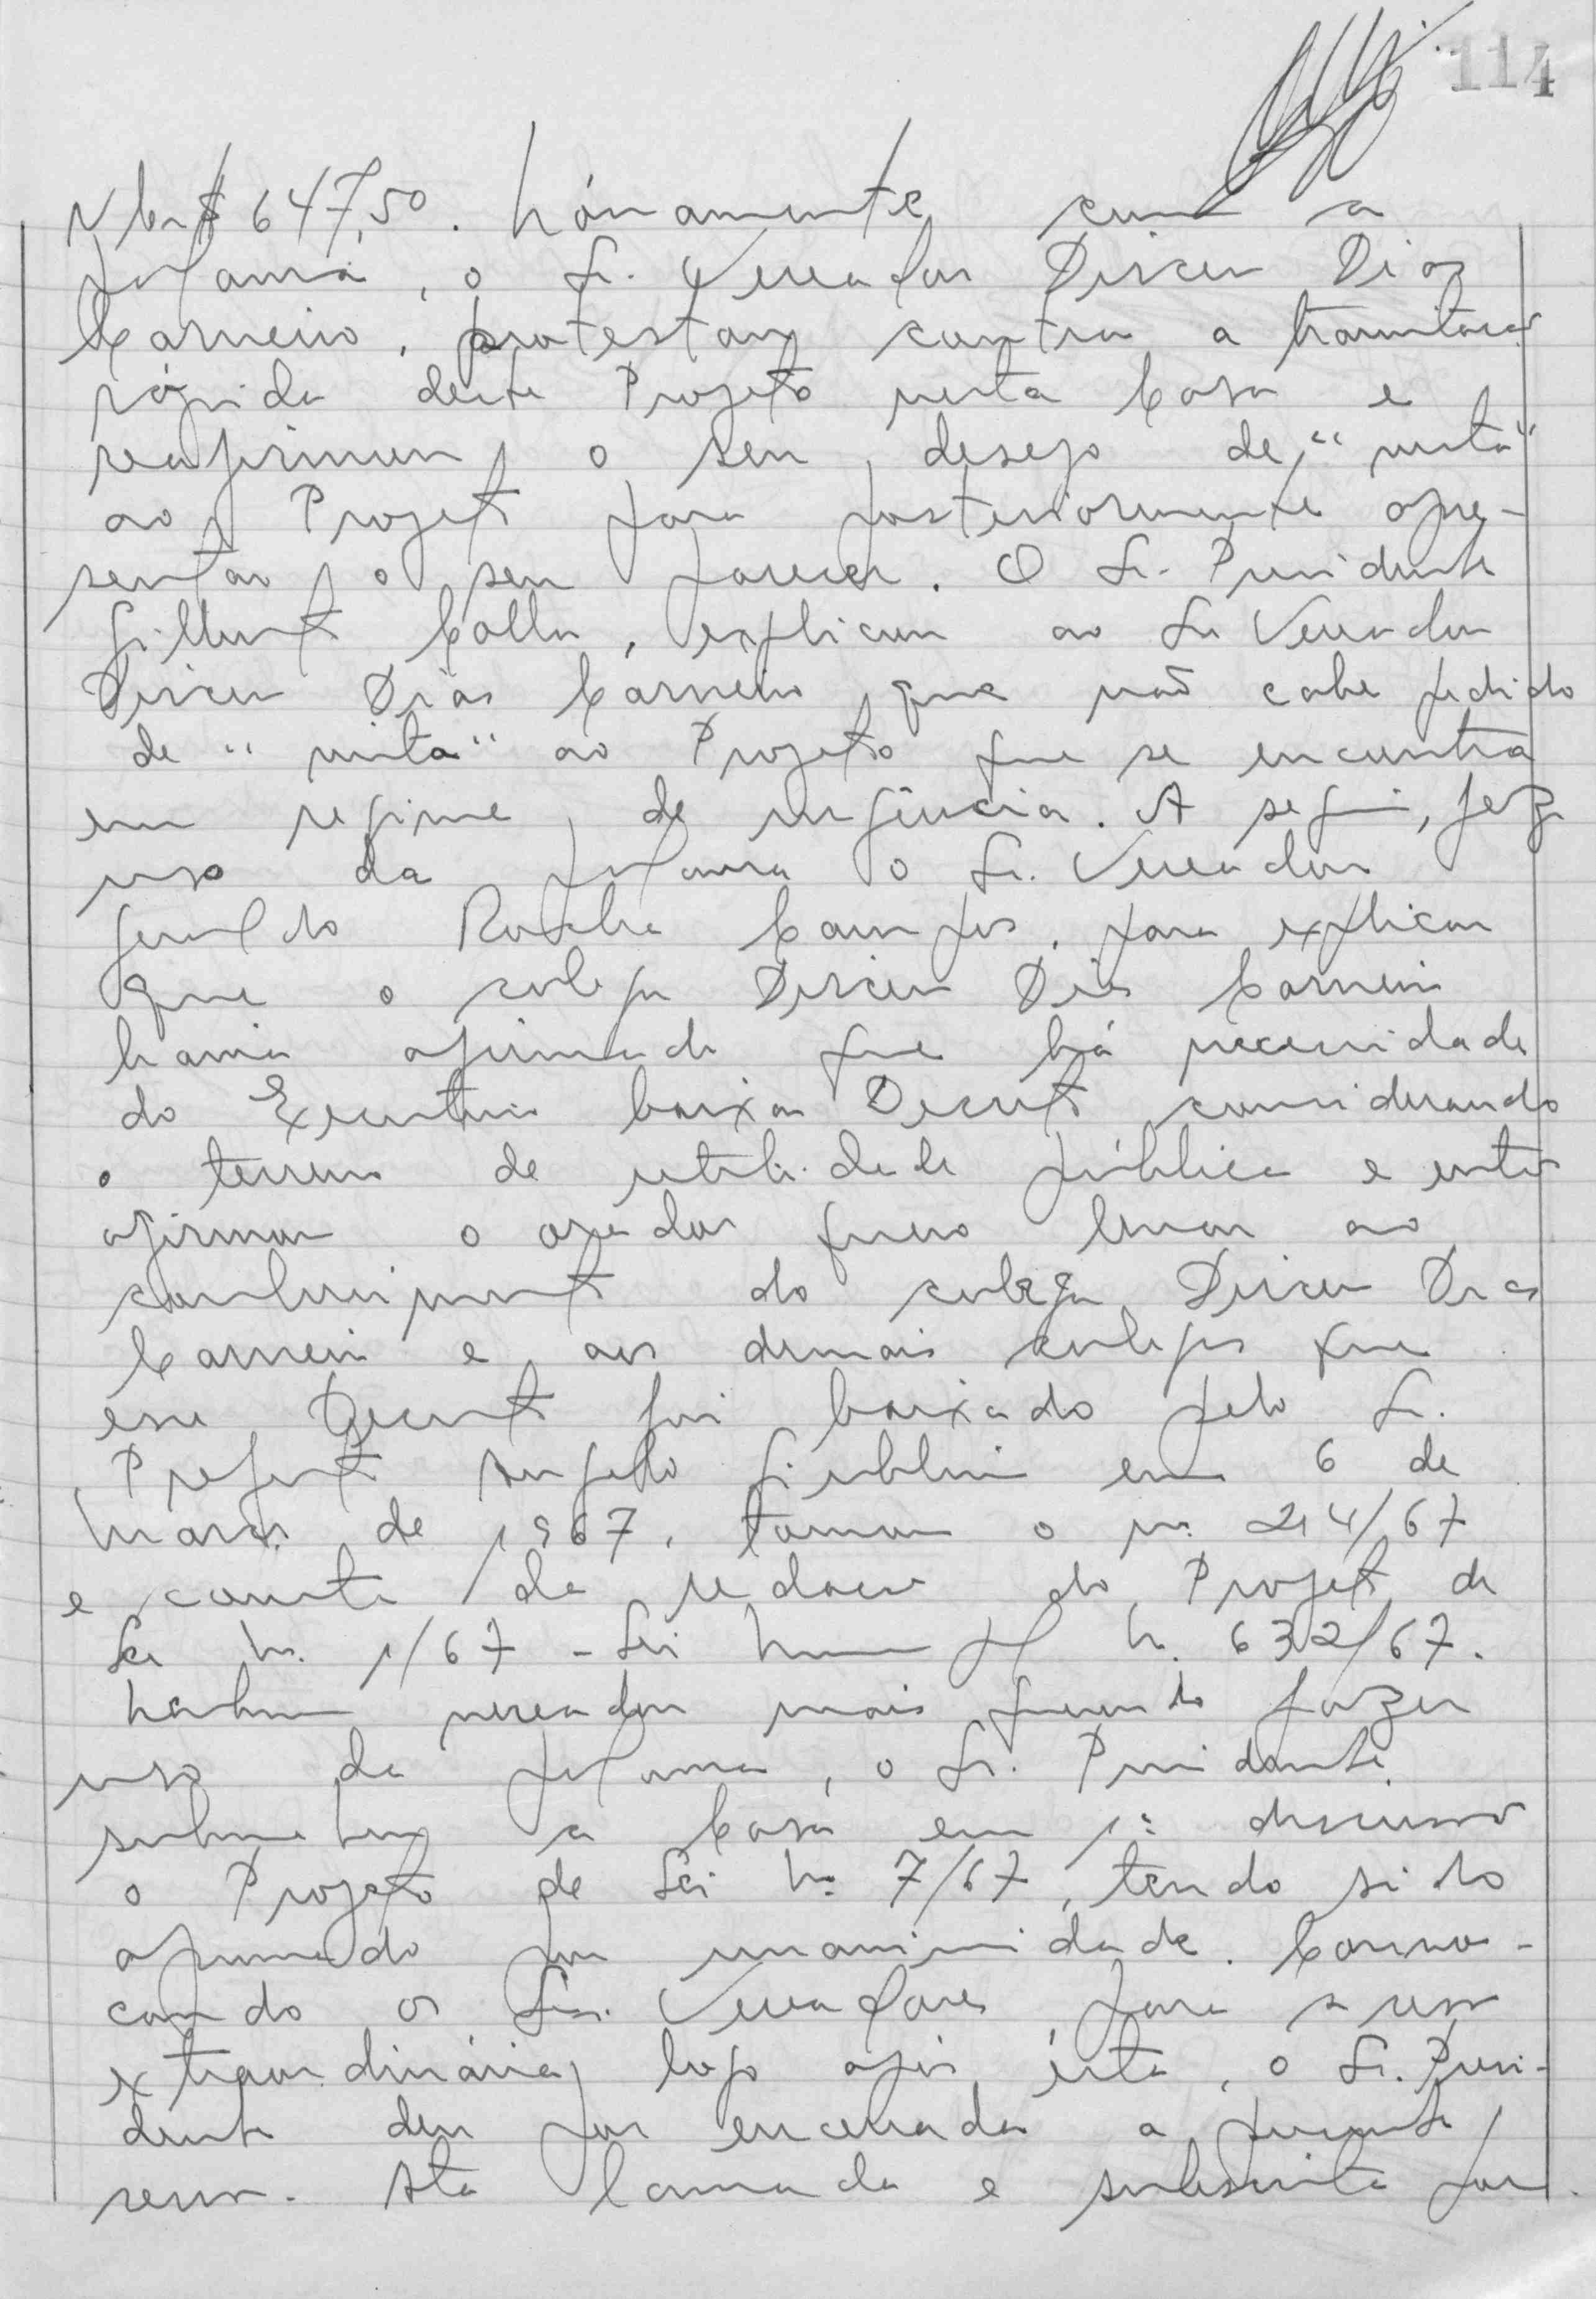 114
NCr$ 647,50. Novamente com a
palavra, o Sr. Vereador Dirceu Dias
Carneiro, protestou contra a tramitação
rápida deste Projeto nesta Casa e
reafirmou o seu desejo de "vista"
ao Projeto para posteriormente apre-
sentar o seu parecer. O Sr. Presidente
Gilberto Colla, explicou ao Sr Vereador
Dirceu Dias Carneiro que não cabe pedido
de "vista" ao Projeto que se encontra
em regime de urgência. A seguir, fez
uso da palavra o Sr. Vereador
Geraldo Rocha Campos, para explicar
que o colega Dirceu Dias Carneiro
havia afirmado que há necessidade
do Executivo baixar Decreto considerando
o terreno de utilidade pública e então
afirmou o orador quero levar ao
conhecimento do colega Dirceu Dias
Carneiro e aos demais colegas que
esse Decreto foi baixado pelo Sr.
Prefeito Angelo em 6 de
Março de 1967, tomou o nº 214/67
e consta da redação do Projeto de
Lei Nº 1/67 - Lei Municipal Nº 632/67.
Nenhum vereador mais querendo fazer
uso da palavra, o Sr. Presidente
submeteu a Casa em 1ª discussão
o Projeto de Lei Nº 7/67, tendo sido
aprovado por unanimidade. Convo-
cando os Srs. Vereadores para sessão
extraordinária, logo após ésta, o Sr. Presi-
dente deu por encerrada a presente
sessão. Ata lavrada e subscrita por